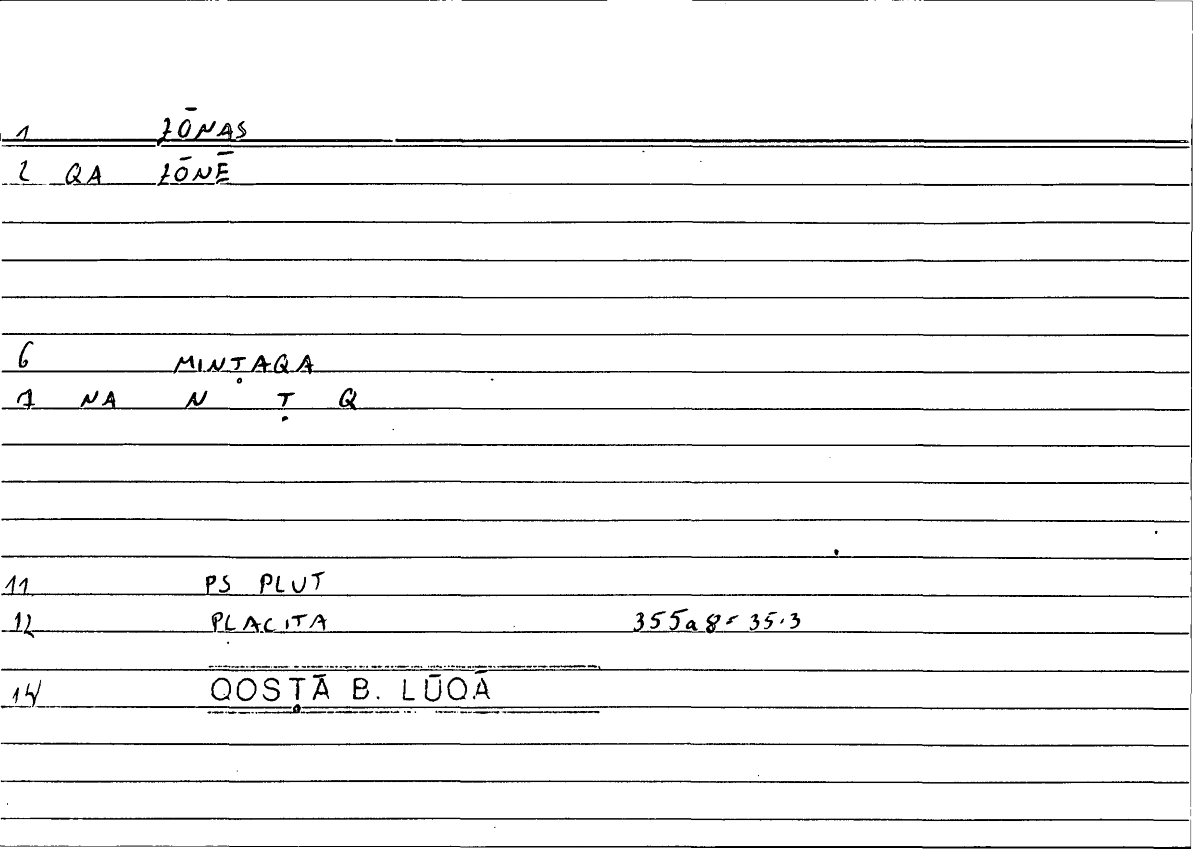 1 ZŌNAS
2 QA ZŌNĒ
6 MINṬAQA
7 NA N Ṭ Q
11 PS PLUT
12 PLACITA 355a8 = 35.3
14 QOSṬĀ B. LŪQĀ